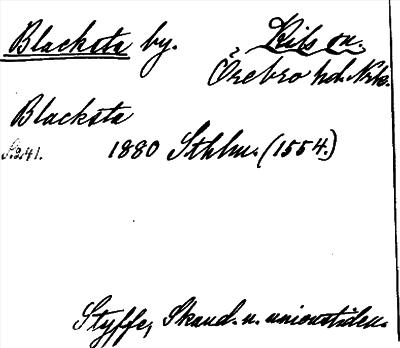 Blacksta by. Kils sn.
Örebro hd. Nrke.
Blacksta
S. 241. 1880 Sthlm. (1554.)
Styffe, Skand. u. unionstiden.